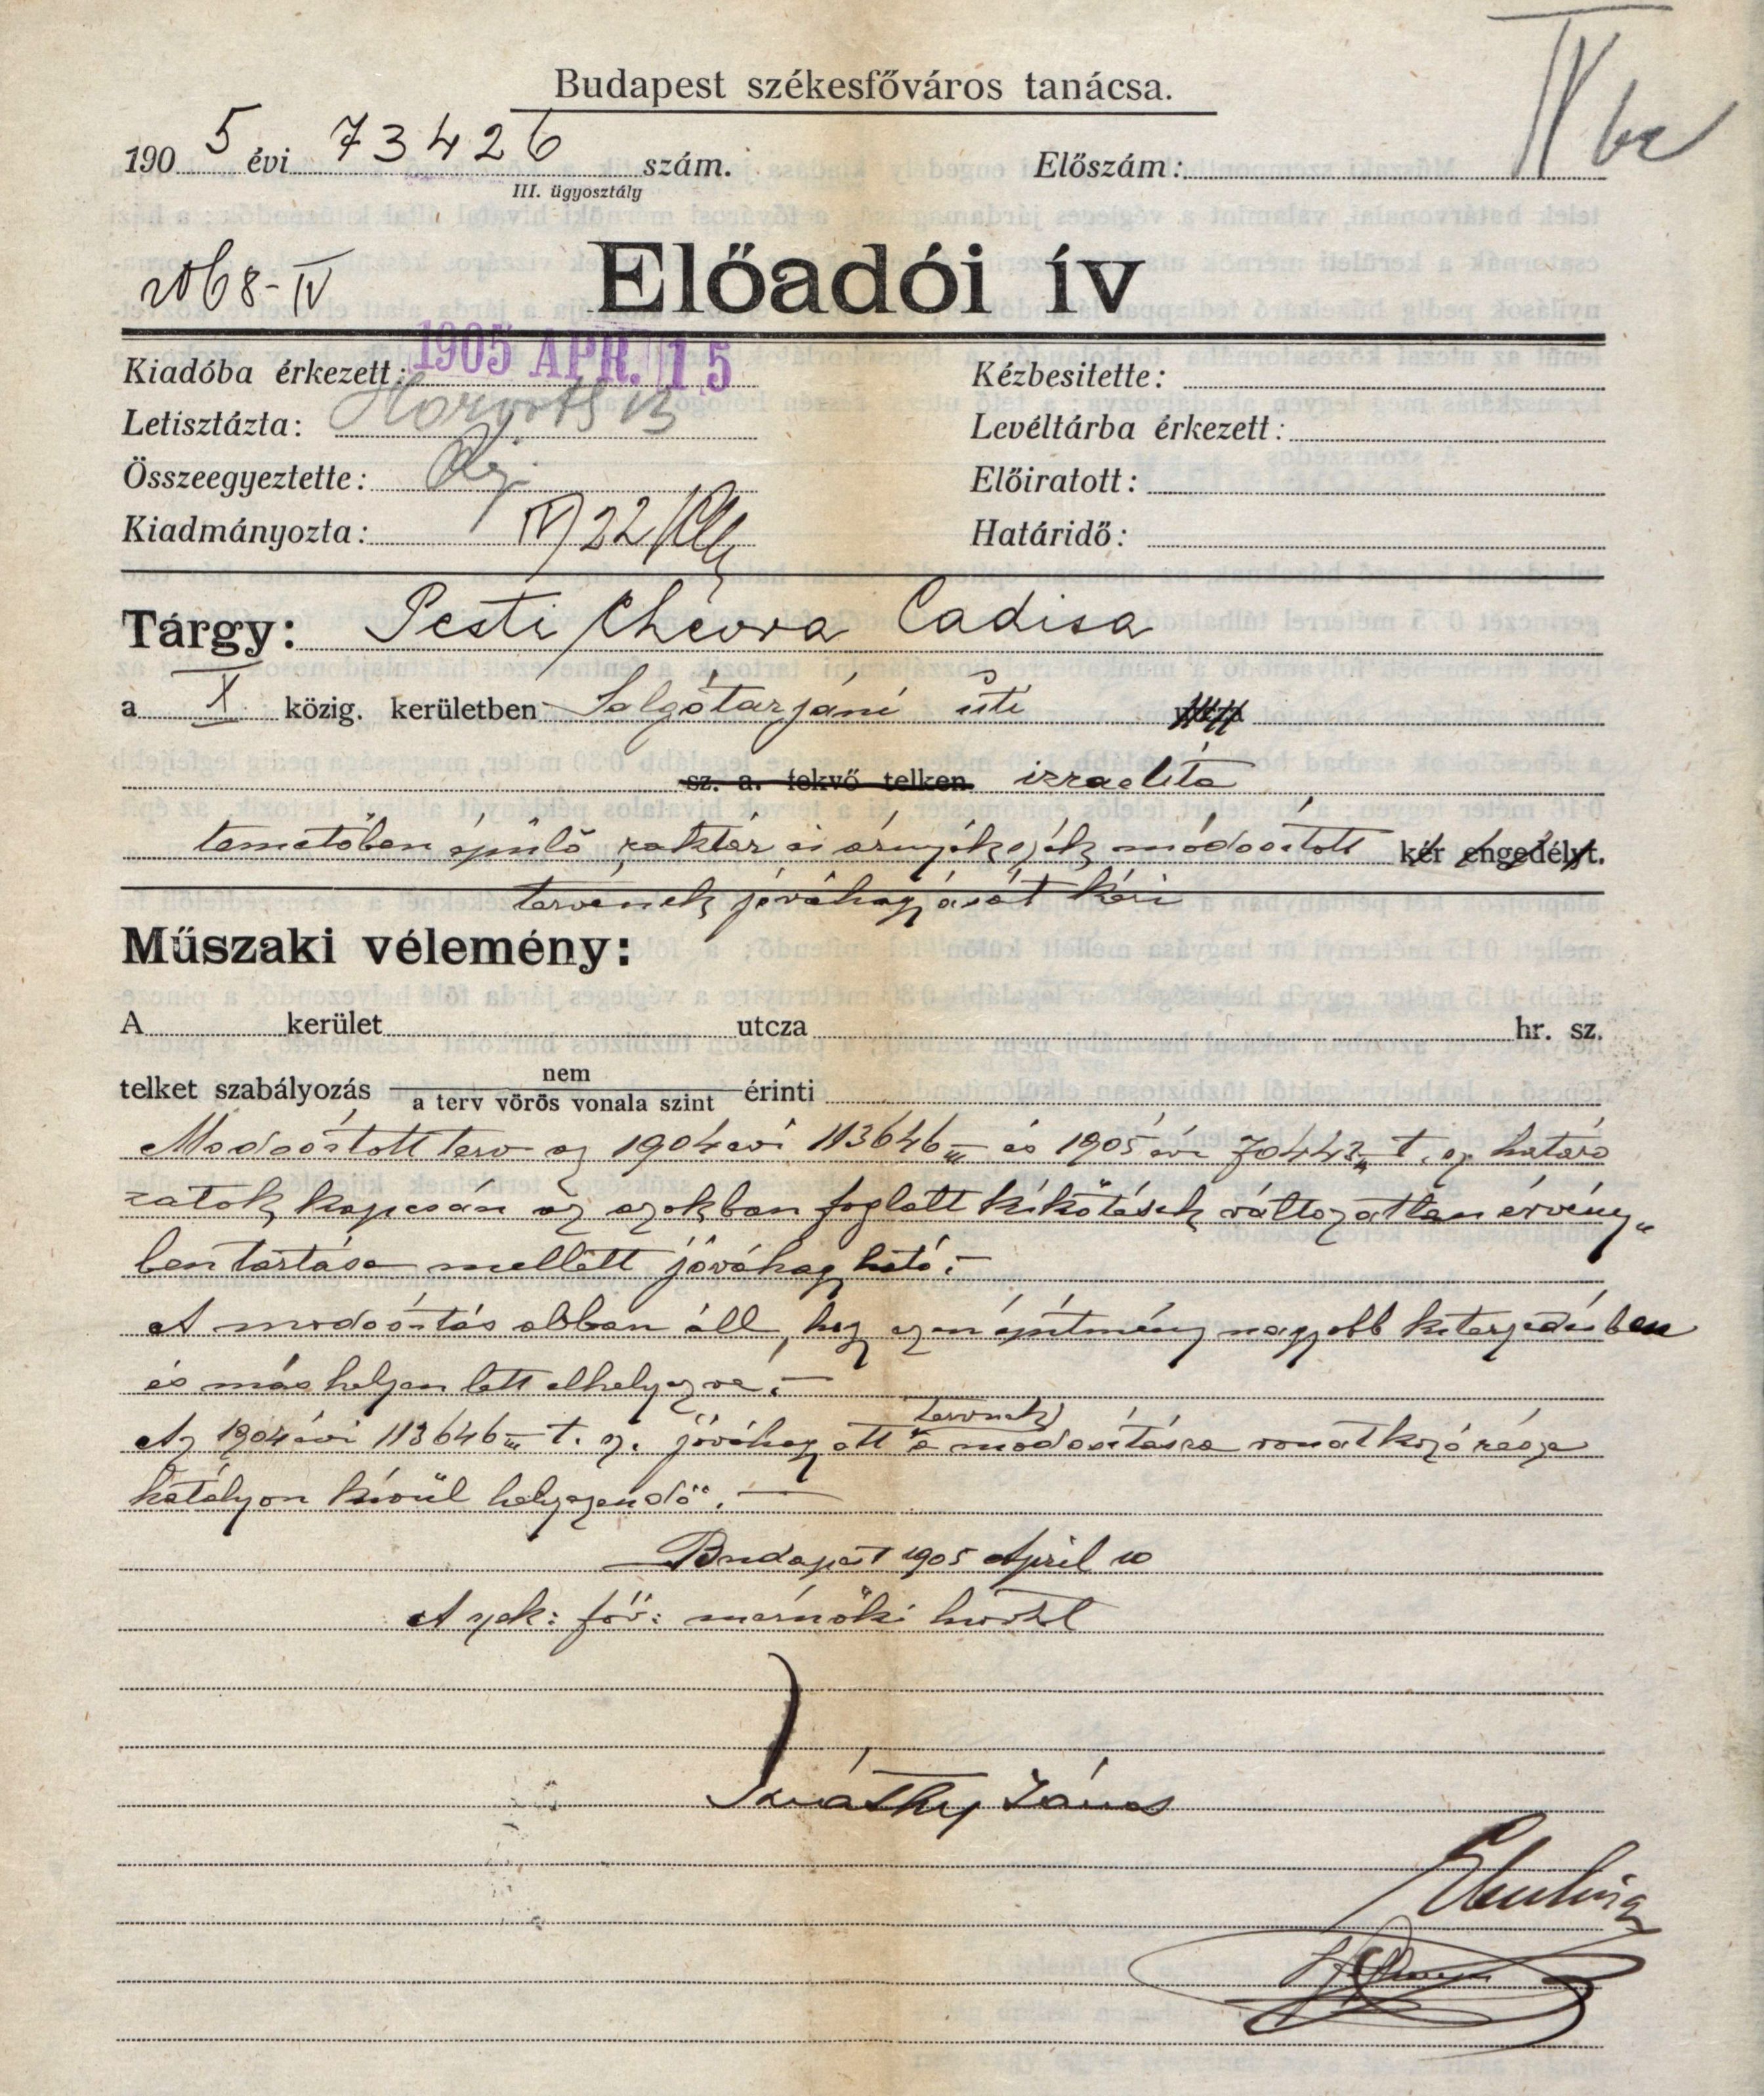 Budapest székesfőváros tanácsa.
1905 évi 73426 szám.
III. ügyosztály
Előszám:
IV
2068-IV
Előadói ív
Kiadóba érkezett: 1905 APR. 15
Kézbesitette:
Letisztázta: Horváth
Levéltárba érkezett:
Összeegyeztette:
Előiratott:
Kiadmányozta: IV/22
Határidő:
Tárgy: Pesti Chevra Cadisa
a X. közig. kerületben Salgótarjáni úti
sz. a. fekvő telken izraelita
temetőben épülő raktár és árnyékszék módosított kér engedélyt.
tervének jóváhagyását kéri
Műszaki vélemény:
A kerület utcza hr. sz.
telket szabályozás nem érinti
a terv vörös vonala szint
Modosított terv az 1904 évi 113646 III és 1905 évi 70443 III t. sz. határo
zatok kapcsán az azokban foglalt kikötések változatlan érvény„
ben tartása mellett jóváhagyható.–
A modosítás abban áll, hogy ezen építmény nagyobb kiterjedésben
és más helyen lett elhelyezve.–
tervnek
Az 1904 évi 113646 III t. sz. jóváhagyott a modosításra vonatkozó része
hatályon kívül helyezendő.–
Budapest 1905 April 10
A szék: főv: mérnöki hivatal
János